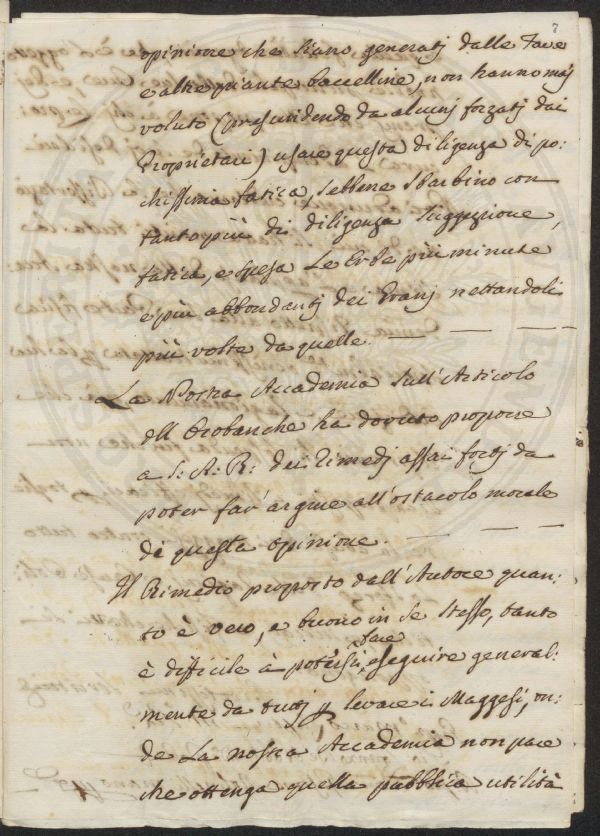 7
opinione che siano generatj dalle Fave
e altre piante baccelline, non hanno maj
voluto (prescindendo da alcunj forzatj dai
Proprietarj) usare questa diligenza di po:
chissima fatica, sebbene sbarbino con
tanto più di diligenza suggezione,
fatica, e spesa Le Erbe più minute
e più abbondantj dei Granj nettandoli
più volte da quelle. — — — —
La Nostra Accademia sull'Articolo
dell Orobanche ha dovuto proporre
a S: A: R: dei Rimedj assai fortj da
poter far' argine all'ostacolo morale
di questa opinione. — — —
Il Rimedio proposto dall'Autore quan:
to è vero, e buono in se stesso, tanto
è difficile à potersi fare eseguire general:
mente da tuttj p levare i Maggesi, on:
de La nostra Accademia non pare
che ottenga quella pubblica utilità